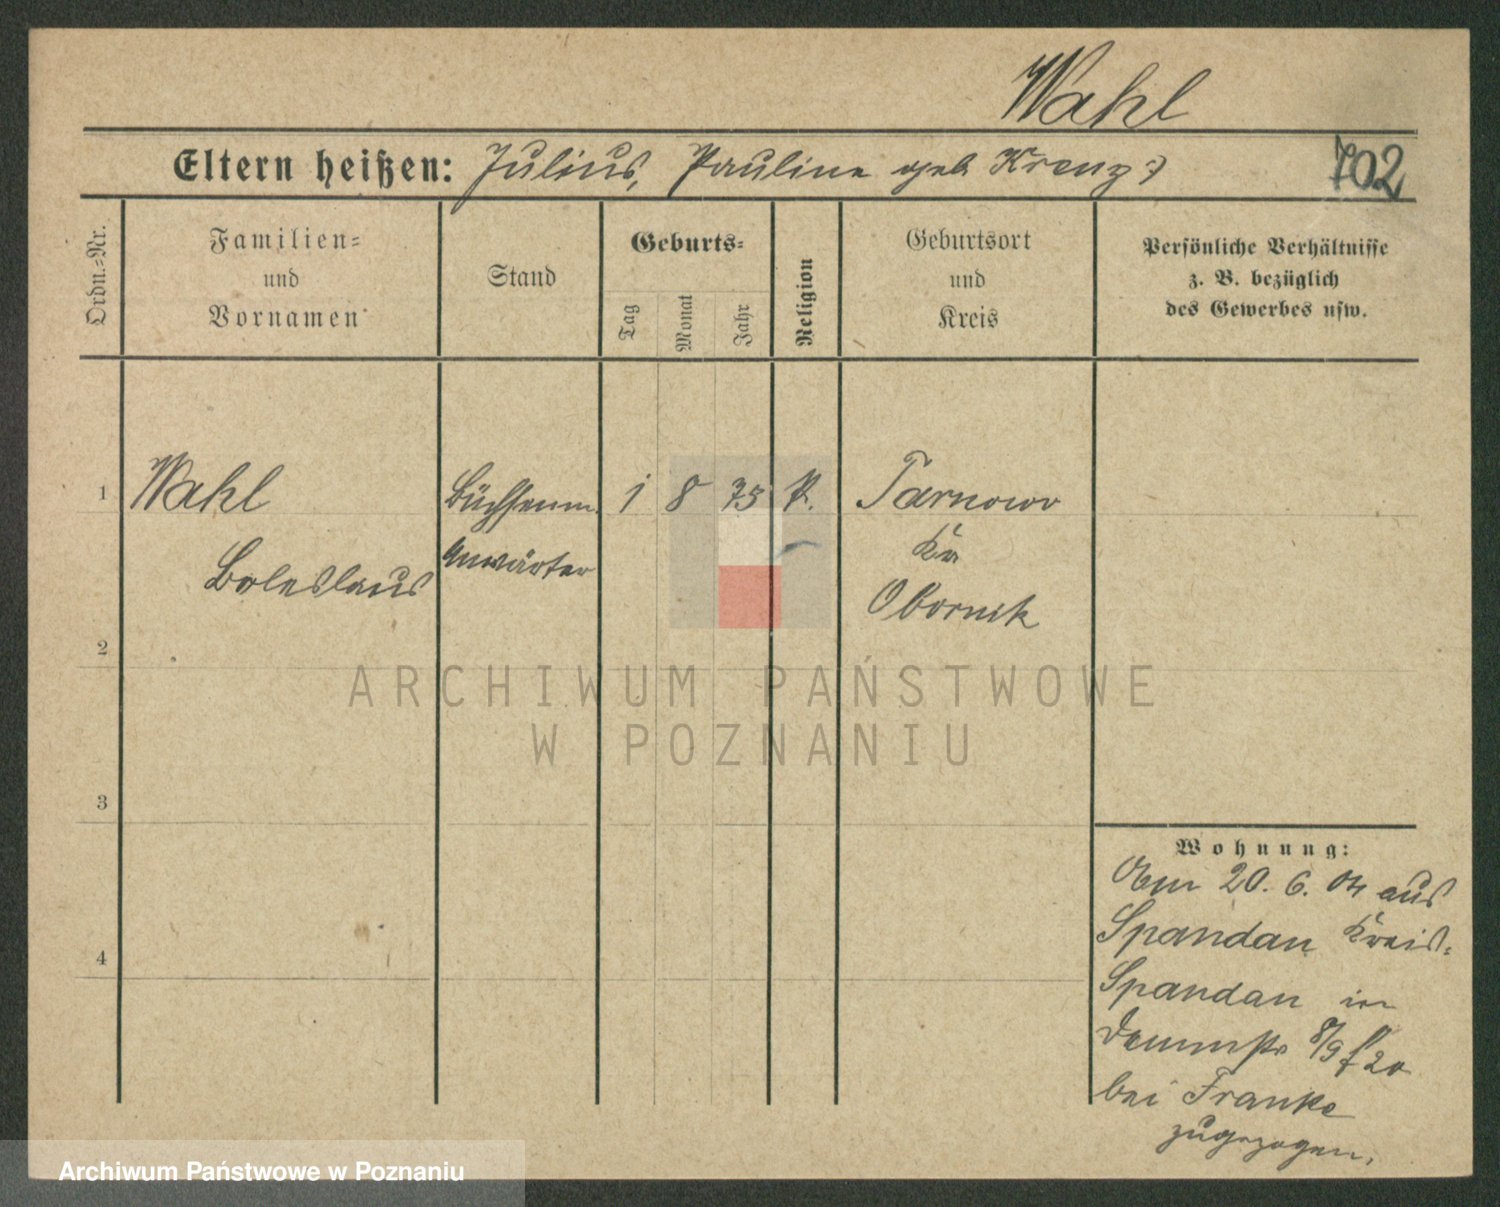 Wahl
Eltern heißen: Julius, Pauline geb Krenz
702
Ordn.-Nr.
Familien-
und
Vornamen
Stand
Geburts-
Tag
Monat
Jahr
Religion
Geburtsort
und
Kreis
Persönliche Verhältnisse
z. B. bezüglich
des Gewerbes usw.
1
Wahl
Boleslaus
Büchsenm.
Anwärter
1 8 75
K.
Tarnowo
Kr
Obornik
2
3
4
Wohnung:
Am 20. 6. 04 aus
Spandau Kreis-
Spandau in
8/9
20
bei Franke
zugezogen.
ARCHIWUM PAŃSTWOWE
W POZNANIU
Archiwum Państwowe w Poznaniu